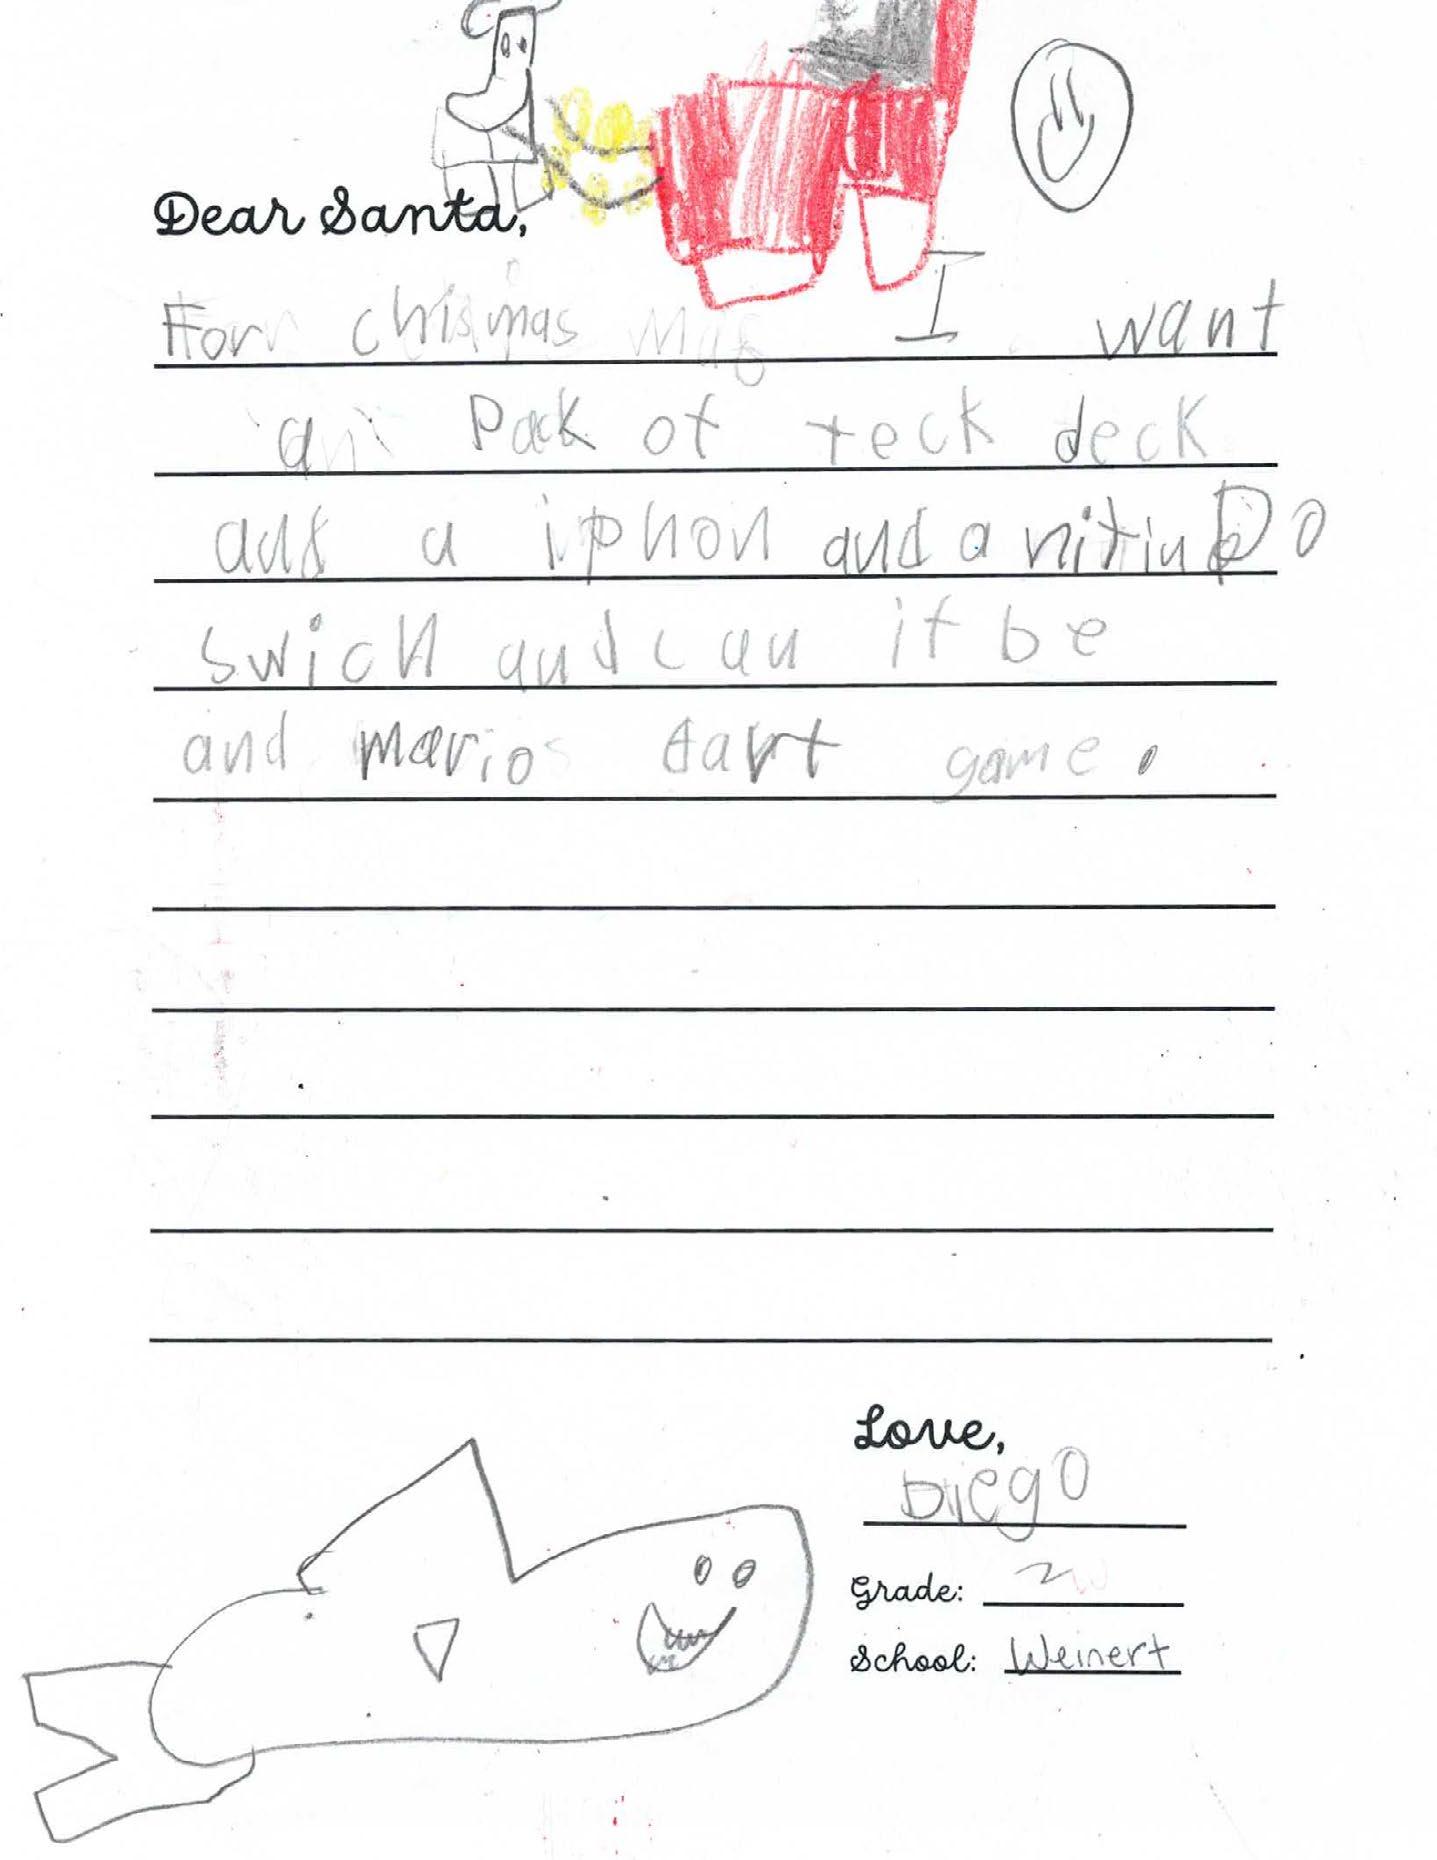 Dear Santa,
For chrismas I want
a Pack of teck deck
and a iphon and a nitinDo
swich and can it be
and mario kart game.
Love,
Diego
Grade: 2
School: Weinert